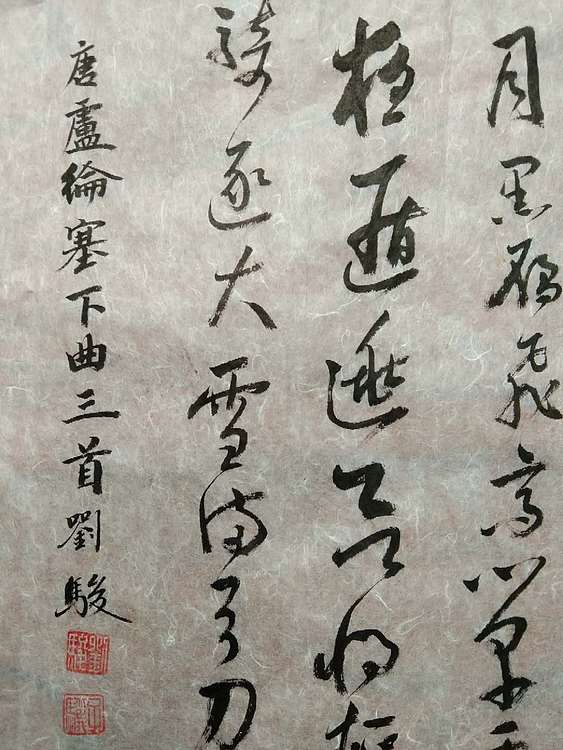 月黑雁飛高單于
夜遁逃欲將輕
騎逐大雪滿弓刀
唐盧綸塞下曲三首劉駿